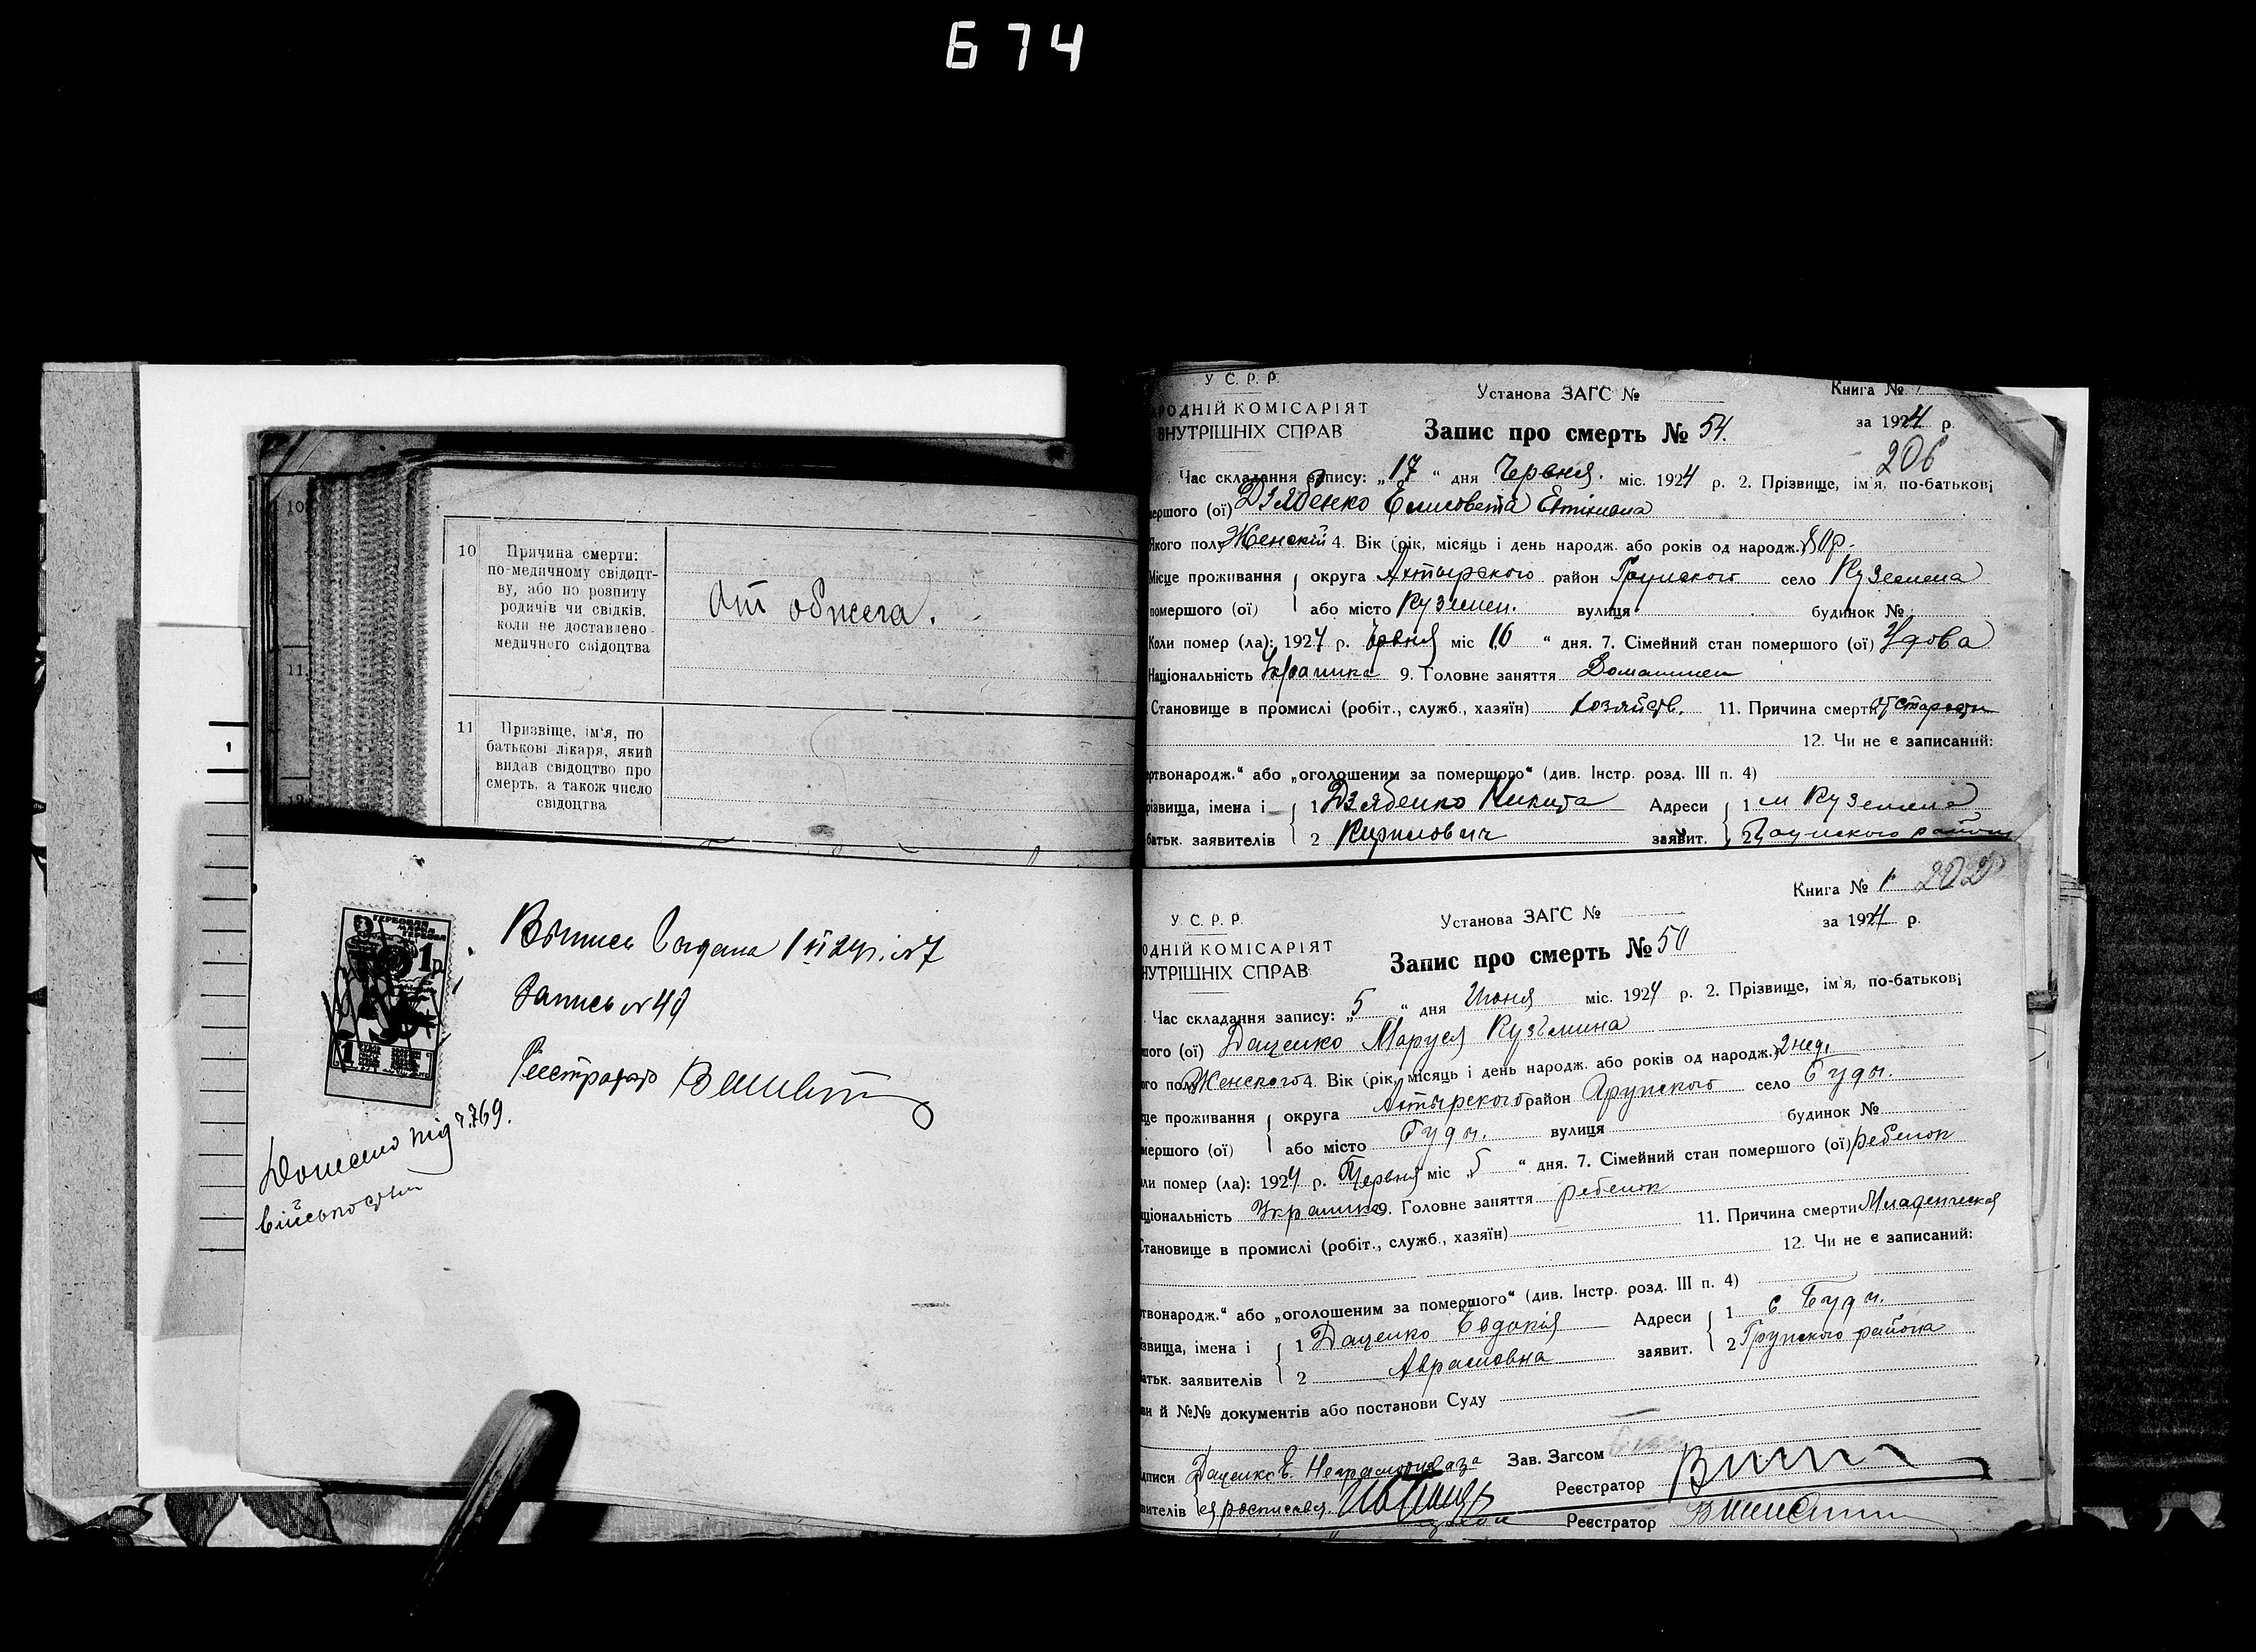 674
10
10 Причина смерти:
по медичному свідоцт-
ву, або по розпиту
родичів чи свідків,
коли не доставлено
медичного свідоцтва
От обжега.
11
11 Призвіще, ім'я, по
батькові лікаря, який
видав свідоцтво про
смерть, а також число
свідоцтва
1 р.
Запись № 49
Реєстратор
769.
У С. Р. Р.
РОДНІЙ КОМІСАРІЯТ
ВНУТРІШНІХ СПРАВ
Установа ЗАГС №
Запис про смерть № 54.
Книга №
за 1924 р.
206
Час складання запису: „17“ дня Червня. міс. 1924 р. 2. Прізвище, ім'я, по-батькові
мершого (ої) Дзябенко Елисовета
Якого полу Женский 4. Вік (рік, місяць і день народж. або років од народж.) 80 р.
Місце проживання округа Ахтырского район Грунского село Куземена
помершого (ої) або місто Куземен. вулиця будинок №
Коли помер (ла): 1924 р. Червня міс 16 “ дня. 7. Сімейний стан помершого (ої) Удова
Національність Украинка 9. Головне заняття Домашнее
Становище в промислі (робіт., служб., хазяїн) хозяйств. 11. Причина смерти От старости
12. Чи не є записаний:
ртвонародж.“ або „оголошеним за померщого“ (див. Інстр. розд. III п. 4)
різвища, імена і 1 Дзябенко Никита Адреси 1 м Куземена
батьк. заявителів 2 Кирилович заявит. 2 Грунского района
Книга № 1
202
У. С. Р. Р.
ОДНІЙ КОМІСАРІЯТ
НУТРІШНІХ СПРАВ
Установа ЗАГС №
за 1924 р.
Запис про смерть № 50
Час складання запису: „5“ дня Июня міс. 1924 р. 2. Прізвище, ім'я, по-батькові
шого (ої) Даценко Маруся Кузьмина
го полу Женского 4. Вік (рік, місяць і день народж. або років од народж.) 2 нед.
це проживання округа Ахтырского район Грунского село Буды.
мершого (ої) або місто Буды. вулиця будинок №
ли помер (ла): 1924 р. Червня міс 5 “ дня. 7. Сімейний стан помершого (ої) ребенок
ціональність Украинка 9. Головне заняття ребенок
Становище в промислі (робіт., служб., хазяїн) 11. Причина смерти Младенческая
12. Чи не є записаний:
твонародж.“ або „оголошеним за померщого“ (див. Інстр. розд. III п. 4)
звища, імена і 1 Даценко Евдокія Адреси 1 с Буды.
атьк. заявителів 2 Аврамовна заявит. 2 Грунского района
ви й №№ документів або постанови Суду
дписи Даценко Е. Неграмотная за Зав. Загсом
вителів ея росписався Реєстратор
Реєстратор